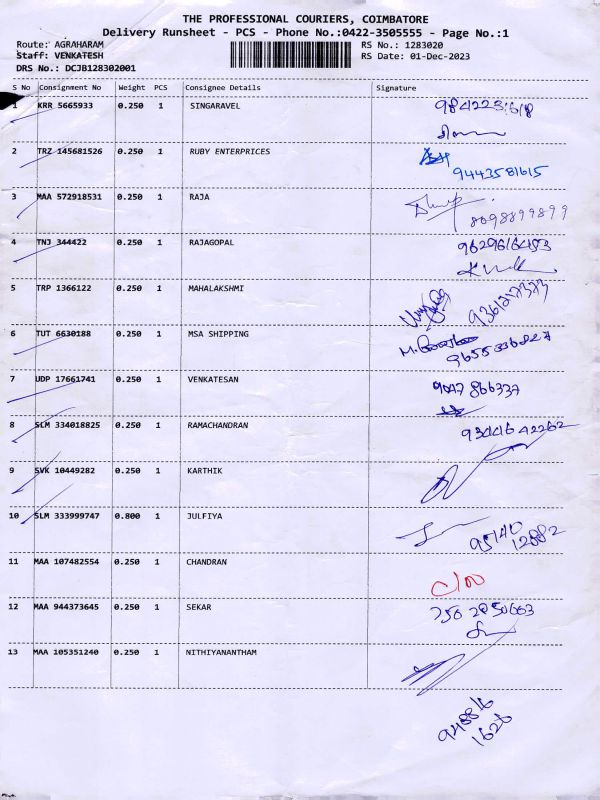 THE PROFESSIONAL COURIERS, COIMBATORE
Delivery Runsheet - PCS - Phone No.:0422-3505555 - Page No.:1
Route: AGRAHARAM RS No.: 1283020
Staff: VENKATESH RS Date: 01-Dec-2023
DRS No.: DCJB128302001
S No Consignment No Weight PCS Consignee Details Signature
1 KRR 5665933 0.250 1 SINGARAVEL
2 TRZ 145681526 0.250 1 RUBY ENTERPRICES
9443581615
3 MAA 572918531 0.250 1 RAJA
8098899899
4 TNJ 344422 0.250 1 RAJAGOPAL
5 TRP 1366122 0.250 1 MAHALAKSHMI
6 TUT 6630188 0.250 1 MSA SHIPPING
7 UDP 17661741 0.250 1 VENKATESAN
8 SLM 334018825 0.250 1 RAMACHANDRAN
9344642262
9 SVK 10449282 0.250 1 KARTHIK
10 SLM 333999747 0.800 1 JULFIYA
95140
12882
11 MAA 107482554 0.250 1 CHANDRAN
12 MAA 944373645 0.250 1 SEKAR
13 MAA 105351240 0.250 1 NITHIYANANTHAM